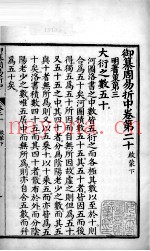 御纂周易折中卷第二十 啟蒙下
明蓍策第三
大衍之數五十
河圖洛書之中數皆五衍之而各極其數以至於十則
合為五十矣河圖積數五十五其五十者皆因五而後
得獨五為五十所因而自無所因故虛之則但為五十
又五十五之中其四十者分為陰陽老少之數而其五
與十者無所為則又以五乘十以十乘五而亦皆為五
十矣洛書積數四十五而其四十者散布於外而分陰
陽老少之數唯五居中而無所為則亦自含五數而并
為五十矣